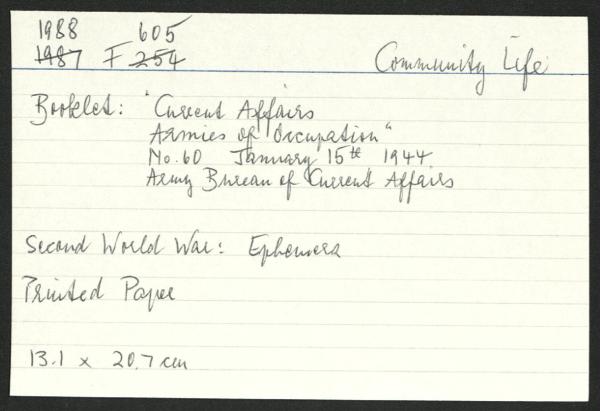 1988 605
1987 F 254
Community Life
Booklet: "Current Affairs
Armies of Occupation"
No. 60 January 15th 1944
Army Bureau of Current Affairs
Second World War: Ephemera
Printed Paper
13.1 x 20.7 cm